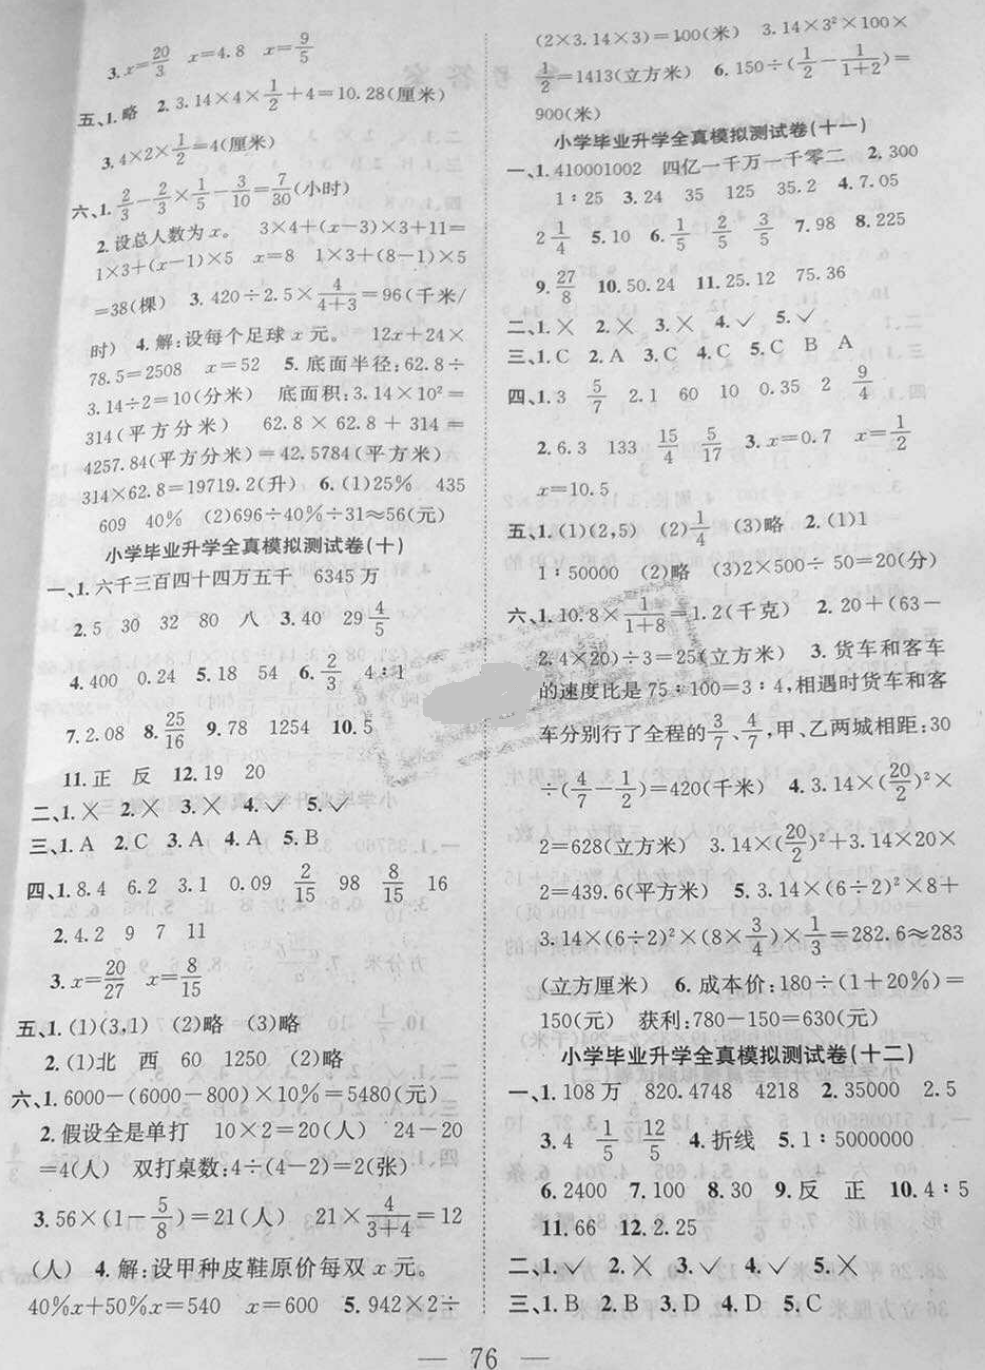 3.x=20/3 x=4.8 x=9/5
五、1.略 2.3.14×4×1/2+4=10.28(厘米)
3.4×2×1/2=4(厘米)
六、1.2/3-2/3×1/5-3/10=7/30(小时)
2.设总人数为x。 3×4+(x-3)×3+11=
1×3+(x-1)×5 x=8 1×3+(8-1)×5
=38(棵) 3.420÷2.5×4/(4+3)=96(千米/
时) 4.解:设每个足球x元。 12x+24×
78.5=2508 x=52 5.底面半径:62.8÷
3.14÷2=10(分米) 底面积:3.14×10²=
314(平方分米) 62.8×62.8+314=
4257.84(平方分米)=42.5784(平方米)
314×62.8=19719.2(升) 6.(1)25% 435
609 40% (2)696÷40%÷31≈56(元)
小学毕业升学全真模拟测试卷(十)
一、1.六千三百四十四万五千 6345万
2.5 30 32 80 八 3.40 29 4/5
4.400 0.24 5.18 54 6.2/3 4∶1
7.2.08 8.25/16 9.78 1254 10.5
11.正 反 12.19 20
二、1.× 2.× 3.× 4.✓ 5.✓
三、1.A 2.C 3.A 4.A 5.B
四、1.8.4 6.2 3.1 0.09 2/15 98 8/15 16
2.4.2 9 7 11
3.x=20/27 x=8/15
五、1.(1)(3,1) (2)略 (3)略
2.(1)北 西 60 1250 (2)略
六、1.6000-(6000-800)×10%=5480(元)
2.假设全是单打 10×2=20(人) 24-20
=4(人) 双打桌数:4÷(4-2)=2(张)
3.56×(1-5/8)=21(人) 21×4/(3+4)=12
(人) 4.解:设甲种皮鞋原价每双x元。
40%x+50%x=540 x=600 5.942×2÷
(2×3.14×3)=100(米) 3.14×3²×100×
1/2=1413(立方米) 6.150÷(1/2-1/(1+2))=
900(米)
小学毕业升学全真模拟测试卷(十一)
一、1.410001002 四亿一千万一千零二 2.300
1∶25 3.24 35 125 35.2 4.7.05
2 1/4 5.10 6.1/5 2/5 3/5 7.98 8.225
9.27/8 10.50.24 11.25.12 75.36
二、1.× 2.× 3.× 4.✓ 5.✓
三、1.C 2.A 3.C 4.C 5.C B A
四、1.3 5/7 2.1 60 10 0.35 2 9/4
2.6.3 133 15/4 5/17 3.x=0.7 x=1/2
x=10.5
五、1.(1)(2,5) (2)1/4 (3)略 2.(1)1
1∶50000 (2)略 (3)2×500÷50=20(分)
六、1.10.8×1/(1+8)=1.2(千克) 2.20+(63-
2.4×20)÷3=25(立方米) 3.货车和客车
的速度比是75∶100=3∶4,相遇时货车和客
车分别行了全程的3/7、4/7,甲、乙两城相距:30
÷(4/7-1/2)=420(千米) 4.3.14×(20/2)²×
2=628(立方米) 3.14×(20/2)²+3.14×20×
2=439.6(平方米) 5.3.14×(6÷2)²×8+
3.14×(6÷2)²×(8×3/4)×1/3=282.6≈283
(立方厘米) 6.成本价:180÷(1+20%)=
150(元) 获利:780-150=630(元)
小学毕业升学全真模拟测试卷(十二)
一、1.108万 820.4748 4218 2.35000 2.5
3.4 1/5 12/5 4.折线 5.1∶5000000
6.2400 7.100 8.30 9.反 正 10.4∶5
11.66 12.2.25
二、1.✓ 2.× 3.✓ 4.✓ 5.×
三、1.B 2.B 3.D 4.D 5.C
— 76 —